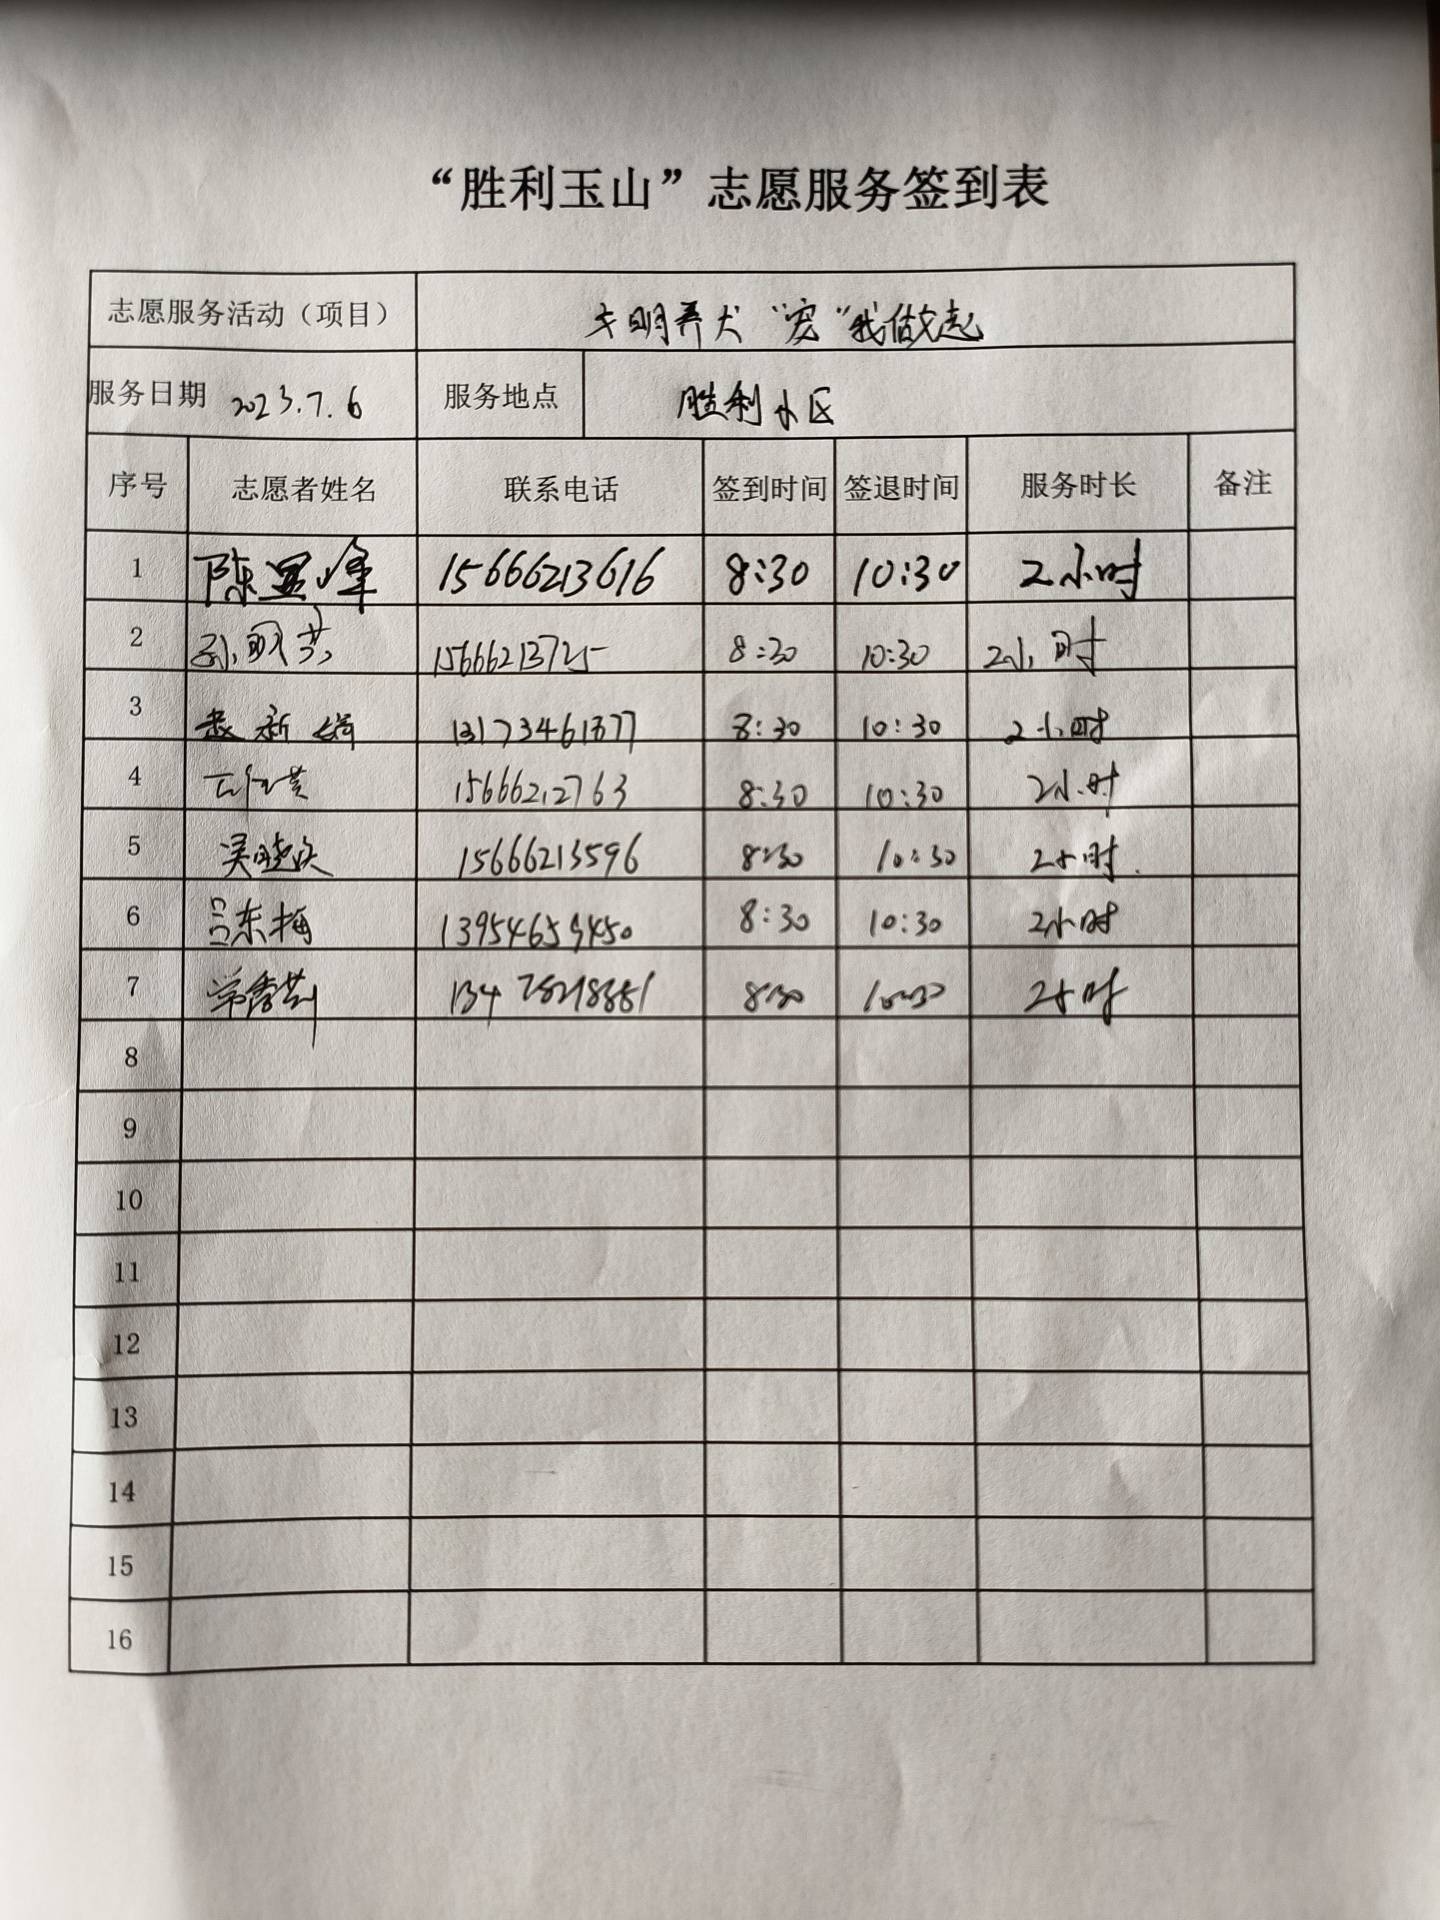 “胜利玉山”志愿服务签到表
志愿服务活动（项目） 文明养犬“宠”我做起
服务日期 2023.7.6 服务地点 胜利小区
序号 志愿者姓名 联系电话 签到时间 签退时间 服务时长 备注
1 陈显峰 15666213616 8:30 10:30 2小时
2 孙明芳 15666213725 8:30 10:30 2小时
3 赵新娟 13173461377 8:30 10:30 2小时
4 15666212763 8:30 10:30 2小时
5 吴晓庆 15666213596 8:30 10:30 2小时.
6 吕东梅 13954659450 8:30 10:30 2小时
7 常秀莉 8:30 10:30 2小时
8
9
10
11
12
13
14
15
16